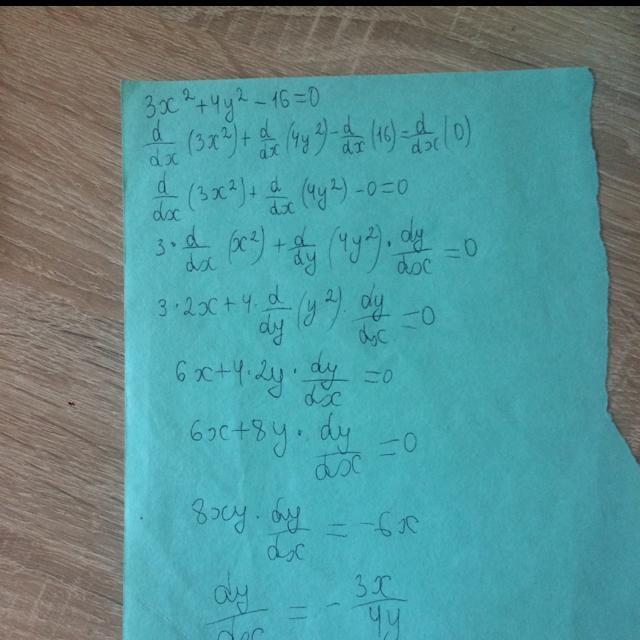 3x² + 4y² - 16 = 0
d/dx (3x²) + d/dx (4y²) - d/dx (16) = d/dx (0)
d/dx (3x²) + d/dx (4y²) - 0 = 0
3 · d/dx (x²) + d/dy (4y²) · dy/dx = 0
3 · 2x + 4 · d/dy (y²) · dy/dx = 0
6x + 4 · 2y · dy/dx = 0
6x + 8y · dy/dx = 0
8xy · dy/dx = -6x
dy/dx = - 3x/4y